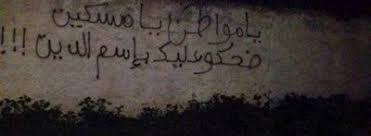 يا مواطن يا مسكين
ضحكو عليك بإسم الدين !!!